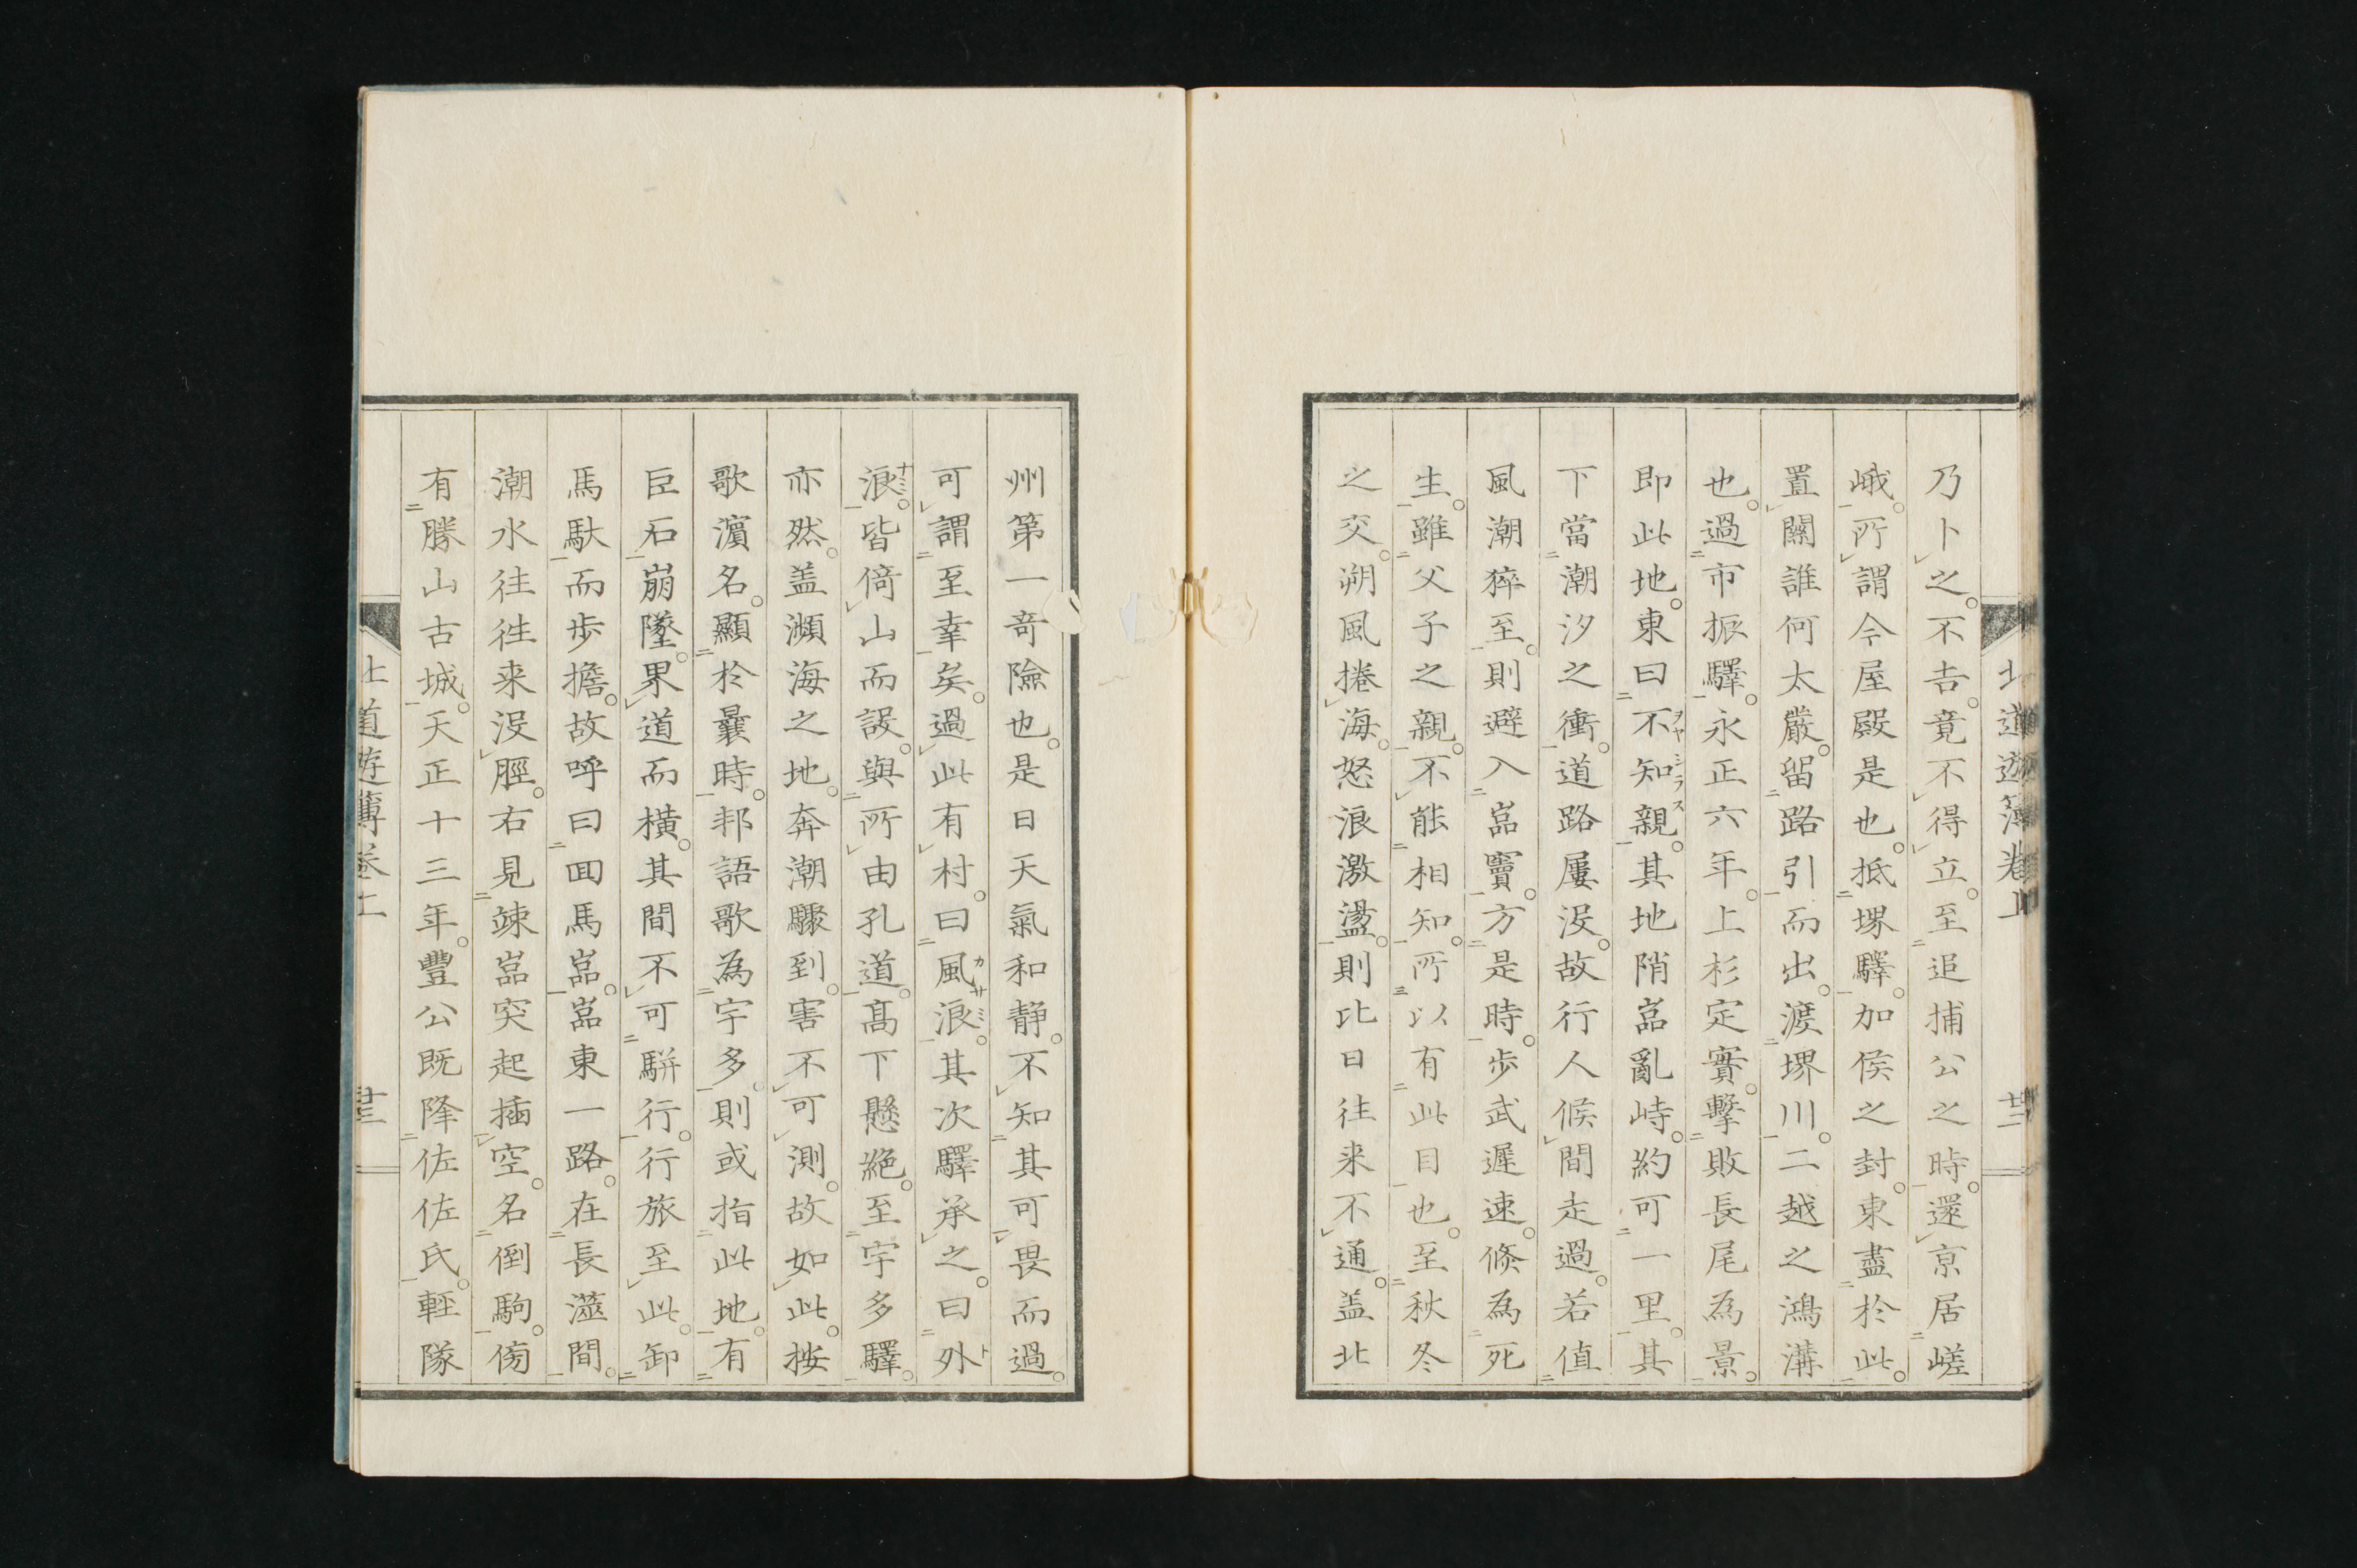 北道遊簿卷上
廿二
乃卜之。不吉。竟不得立。至追捕公之時。還京居嵯
峨。所謂今屋殿是也。抵堺驛。加侯之封。東盡於此。
置關誰何太嚴。留路引而出。渡堺川。二越之鴻溝
也。過市振驛。永正六年。上杉定實。擊敗長尾為景。
即此地。東曰不知親。其地陗嵓亂峙。約可一里。其
下當潮汐之衝。道路屢沒。故行人候間走過。若值
風潮猝至。則避入嵓竇。方是時。歩武遲速。倏為死
生。雖父子之親。不能相知。所以有此目也。至秋冬
之交。朔風捲海。怒浪激盪。則比日往来不通。盖北
州第一奇險也。是日天氣和静。不知其可畏而過。
可謂至幸矣。過此有村。曰風浪。其次驛承之。曰外
浪。皆倚山而設。與所由孔道。高下懸絶。至宇多驛。
亦然。盖瀕海之地。奔潮驟到。害不可測。故如此。按
歌濵名。顯於曩時。邦語歌為宇多。則或指此地。有
巨石崩墜。果道而横。其間不可駢行。行旅至此。卸
馬馱而歩擔。故呼曰囬馬嵓。嵓東一路。在長澨間。
潮水往往来沒脛。右見竦嵓突起插空。名倒駒。傍
有勝山古城。天正十三年。豐公既降佐佐氏。輕隊
北道遊簿卷上
廿三